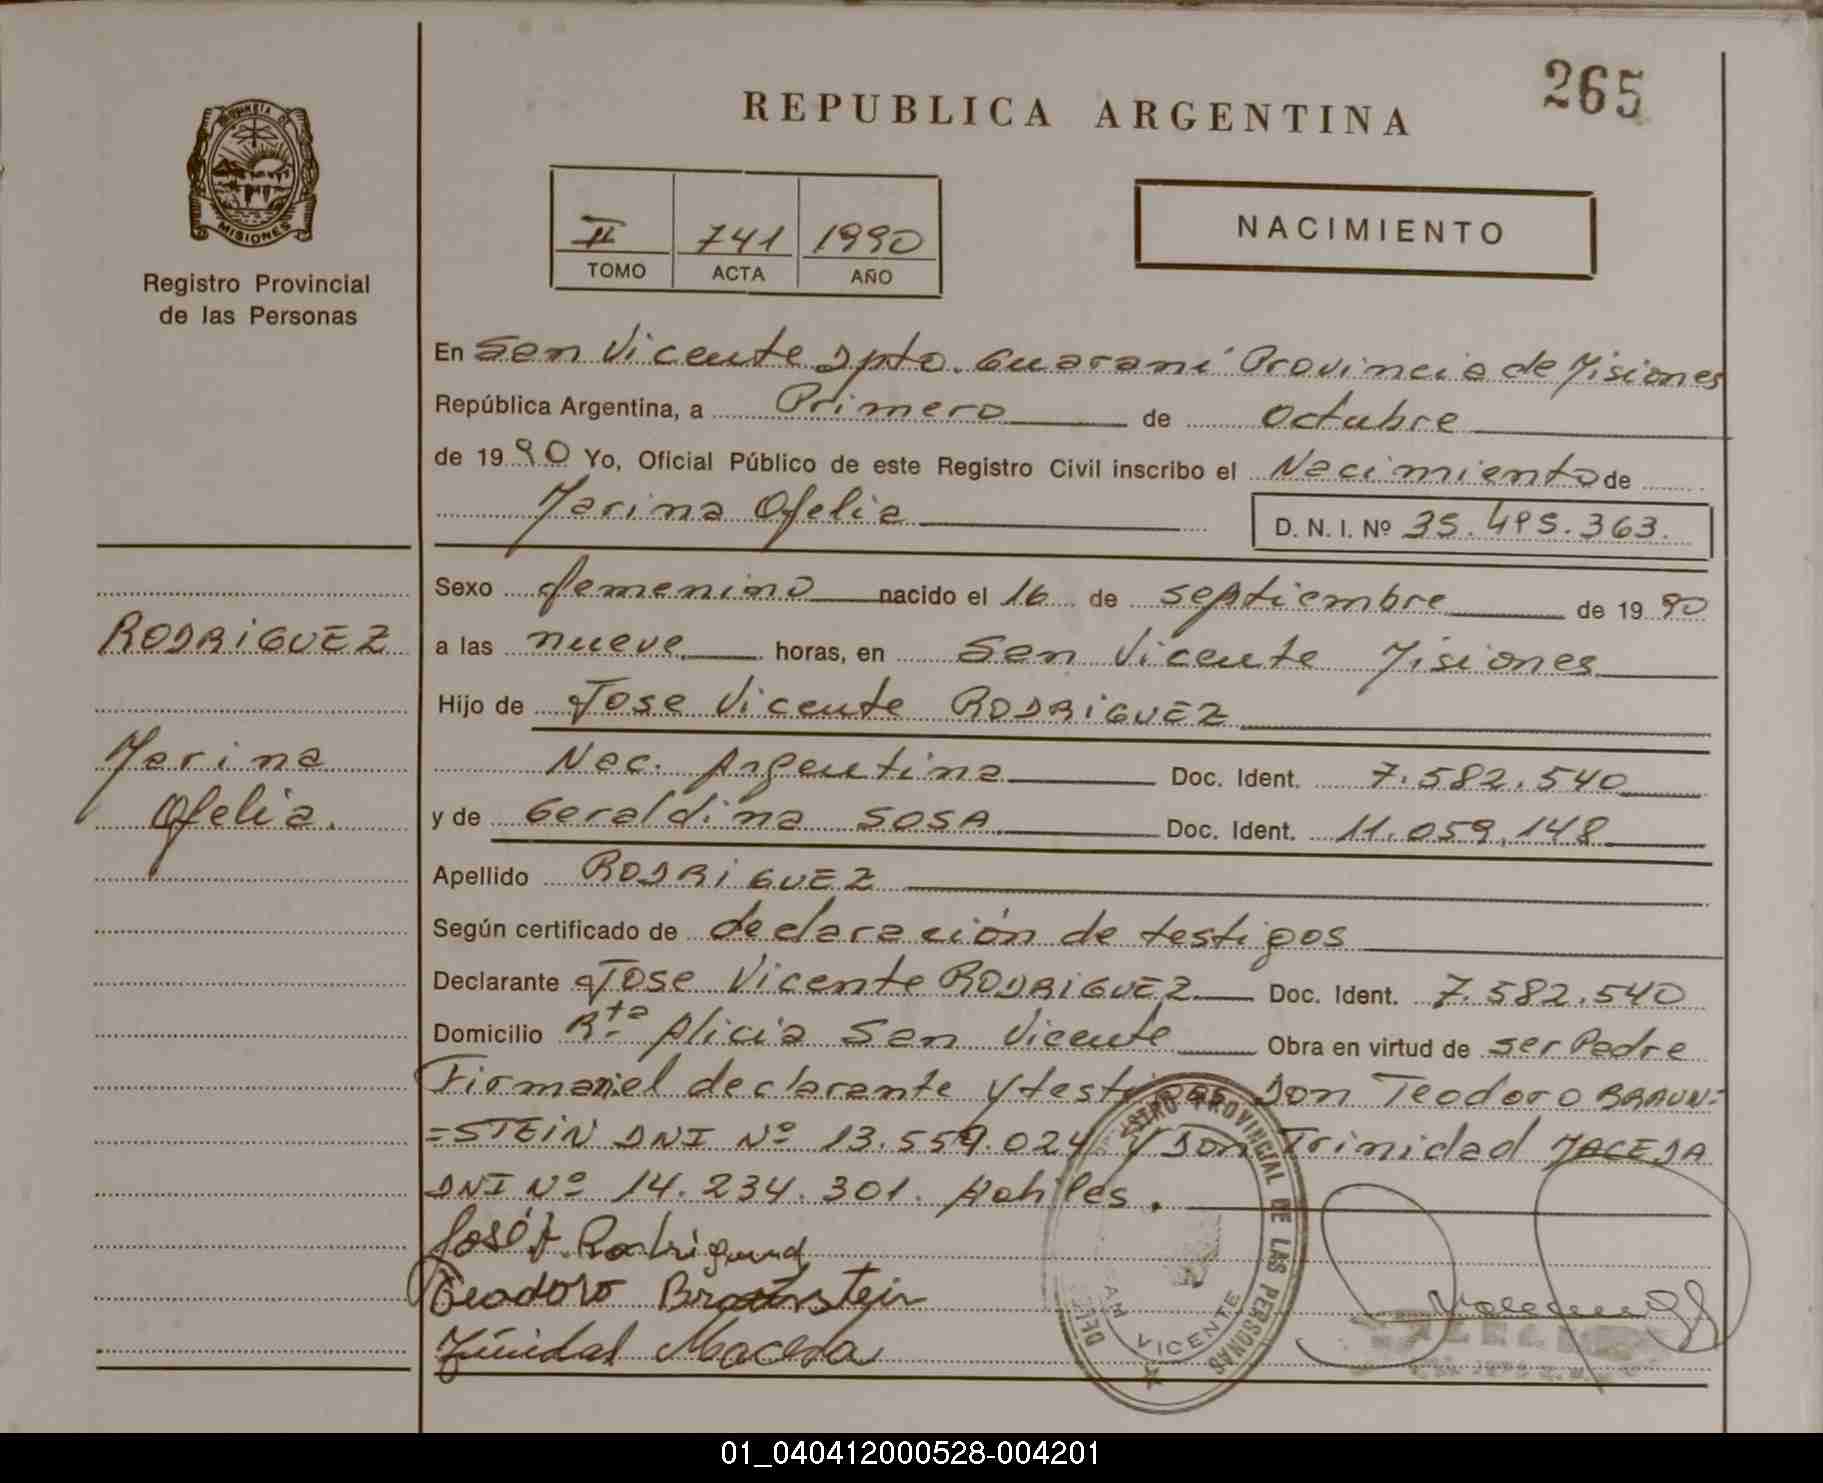 265
REPUBLICA ARGENTINA
PROVINCIA DE
MISIONES
Registro Provincial
de las Personas
II 741 1990
TOMO ACTA AÑO
NACIMIENTO
En San Vicente Dpto. Guaraní Provincia de Misiones
República Argentina, a Primero de Octubre
de 1990 Yo, Oficial Público de este Registro Civil inscribo el Nacimiento de
Marina Ofelia D. N. I. Nº 35.495.363.
RODRIGUEZ
Marina
Ofelia.
Sexo femenino nacido el 16 de septiembre de 1990
a las nueve horas, en San Vicente Misiones
Hijo de Jose Vicente RODRIGUEZ
Nac. Argentina Doc. Ident. 7.582.540
y de Geraldina SOSA Doc. Ident. 11.059.148
Apellido RODRIGUEZ
Según certificado de declaración de testigos
Declarante Jose Vicente RODRIGUEZ Doc. Ident. 7.582.540
Domicilio Rta Alicia San Vicente Obra en virtud de ser Padre
Firman el declarante y testigos Don Teodoro BRAUN=
=STEIN DNI Nº 13.559.024 y Don Trinidad MACEDA
DNI Nº 14.234.301. Hábiles.
José V. Rodriguez
Teodoro Braunstein
Trinidad Maceda
REGISTRO PROVINCIAL DE LAS PERSONAS
VICENTE
01_040412000528-004201